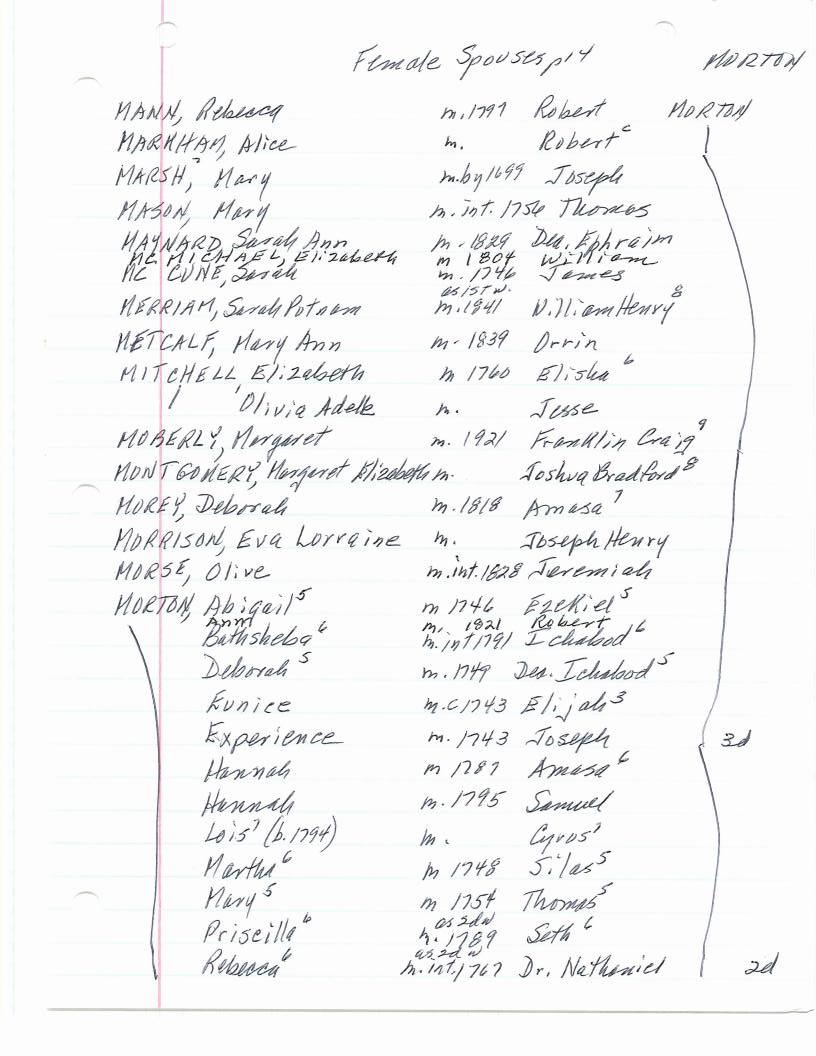 Female Spouses p14 MORTON
MANN, Rebecca m. 1797 Robert MORTON
MARKHAM, Alice m. Robert c
MARSH?, Mary m. by 1699 Joseph
MASON, Mary m. int. 1756 Thomas
MAYNARD, Sarah Ann m. 1829 Dea. Ephraim
MC MICHAEL, Elizabeth m 1804 William
MC CUNE, Sarah m. 1746 James
as 1st w.
MERRIAM, Sarah Putnam m. 1841 William Henry 8
METCALF, Mary Ann m. 1839 Orrin
MITCHELL, Elizabeth m 1760 Elisha 6
Olivia Adelle m. Jesse
MOBERLY, Margaret m. 1921 Franklin Craig 9
MONTGOMERY, Margaret Elizabeth m. Joshua Bradford 8
MOREY, Deborah m. 1818 Amasa 7
MORRISON, Eva Lorraine m. Joseph Henry
MORSE, Olive m. int. 1828 Jeremiah
MORTON, Abigail 5 m 1746 Ezekiel 5
Ann m. 1821 Robert
Bathsheba 6 m. int 1791 Ichabod 6
Deborah 5 m. 1749 Dea. Ichabod 5
Eunice m. c 1743 Elijah 3
Experience m. 1743 Joseph 3d
Hannah m 1787 Amasa 6
Hannah m. 1795 Samuel
Lois 7 (b. 1794) m. Cyrus 7
Martha 6 m 1748 Silas 5
Mary 5 m 1754 Thomas 5
as 2d w
Priscilla 6 m. 1789 Seth 6
as 2d w
Rebecca 6 m. int. 1767 Dr. Nathaniel 2d